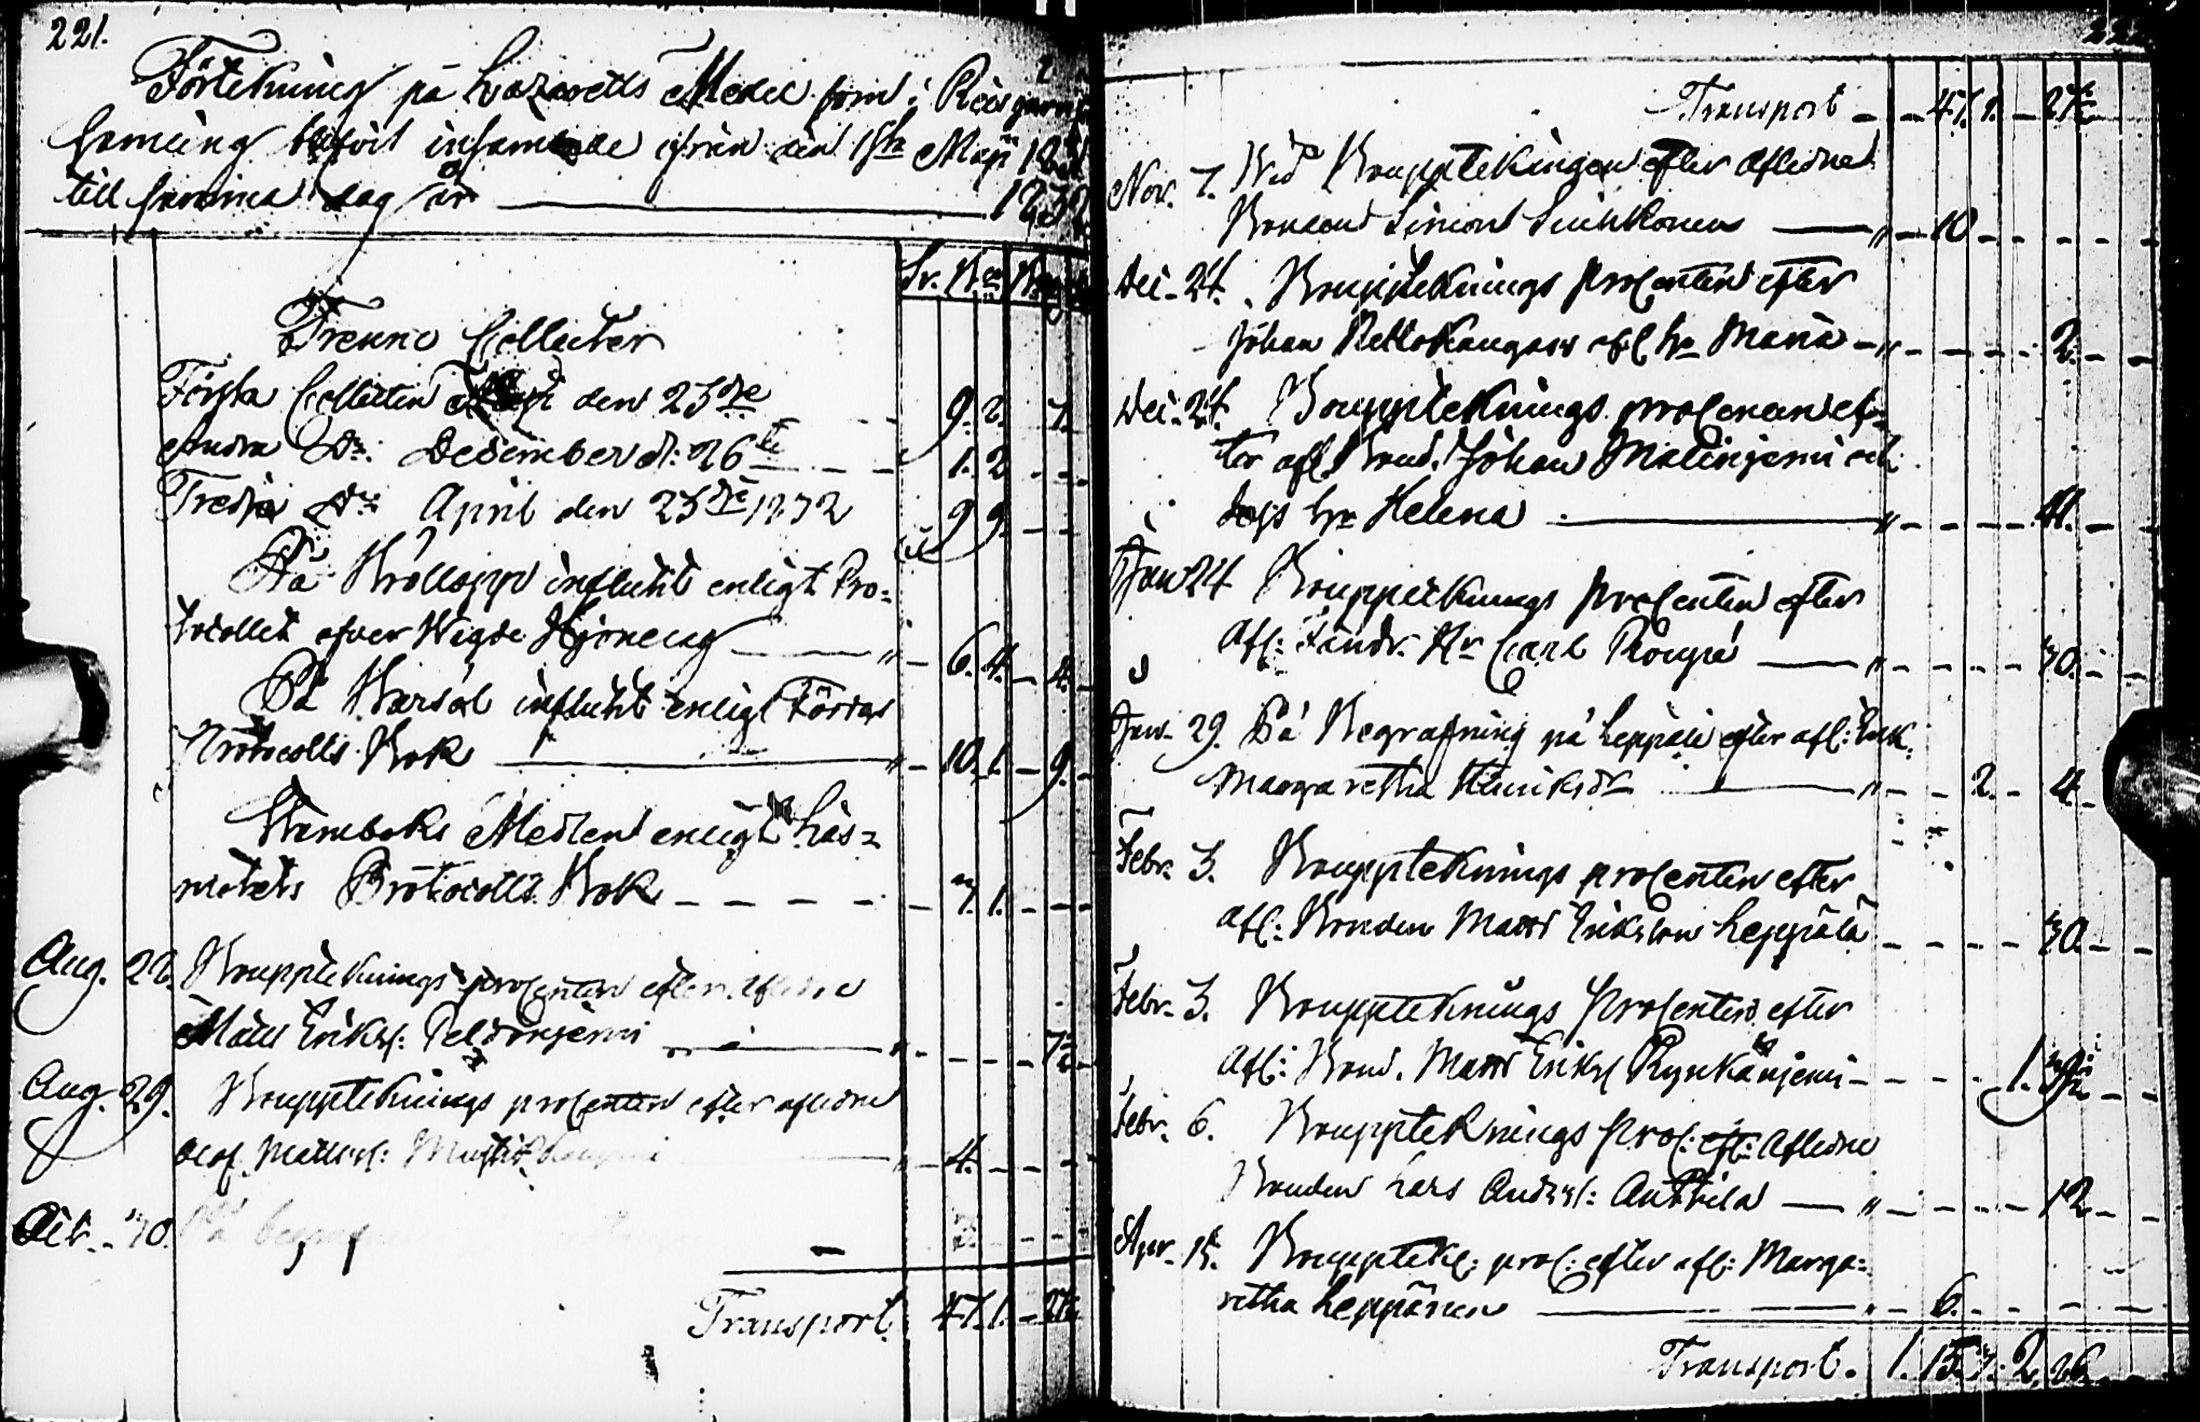 221.
Förtekning på Lazaretts Medel som i Reisjärvi
samling blifvit insamlade ifrån den 1sta Maji 1831
till samma dag år 1832
Sr. Rr
Trenne Collecter
Första Collecten Maji den 23de 9. 2. 7.
Andra Do: December d: 26te 1. 2
Tredje Do: April den 23de 1832 9 9.
På Bröllopp influtit enligt Pro-
tocollet öfver Wigde Hjoneng " 6. 4. 4.
På Barsöl influtit enligt Förr
Protocolls Bok " 10. 1. 9.
Stamboks Medlen enligt Läs-
mötets Protocolls Bok 7. 1.
Aug. 22. Bouppteknings procenten efter aflidne
Matts Eriks: Peldonjemi " 7½
Aug. 29. Bouppteknings procenten efter aflidne
Olof Mattss: " 4.
Oct. 30. På
Transport 47. 1. 27½
Transport 47. 1. 27½
Nov. 7. Vid Bouptekningen efter Aflidne
Bonden Simon " 10
Dec. 24. Bouppteknings procenten efter
Johan Kellokangas afl. hr Maria " 2.
Dec. 24. Bouppteknings procenten ef-
ter afl. Bond. Johan Malinjemi och
dess hr Helena " 11.
Jan 24 Bouppteknings procenten efter
Afl: Fändr. Hr Carl " 30.
Jan. 29. På Begrafning på Leppälä efter afl: Enk.
Margaretha Henriksdr " 2. 4.
Febr. 3. Bouppteknings procenten efter
Afl: Bonden Matts Erikson Leppälä 30.
Febr. 3. Bouppteknings Procenten efter
Afl: Bond. Matts Eriks: Kynkänjemi 1.
Febr. 6. Bouppteknings proc: eft: Aflidne
Bonden Lars Anderss: Anttila " 12
Apr. 15. Bouppteks: proc: efter afl: Marga-
retha Leppänen " 6.
Transport. 1. 15. 2. 26